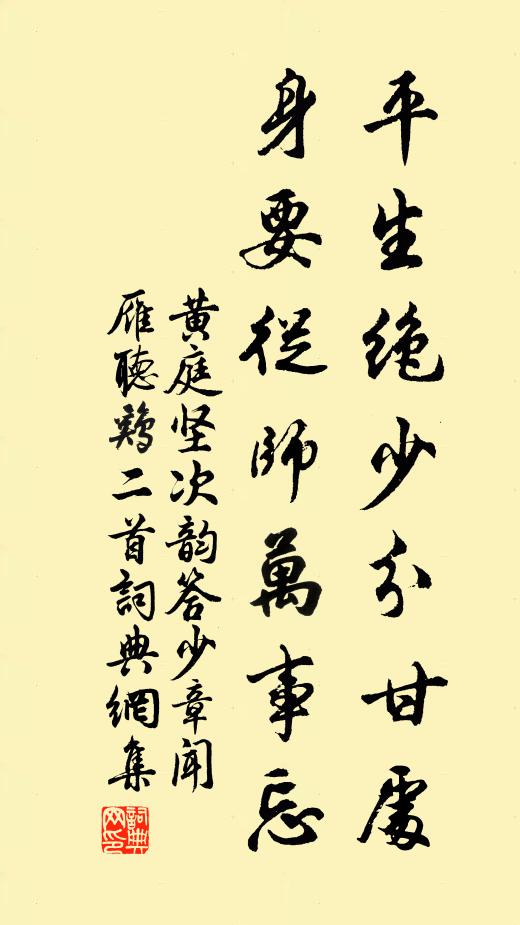 平生絶少分甘處
身要從師萬事忘
黄庭坚次韵答少章聞
雁聴鷄二首詞典網集
詞典網印